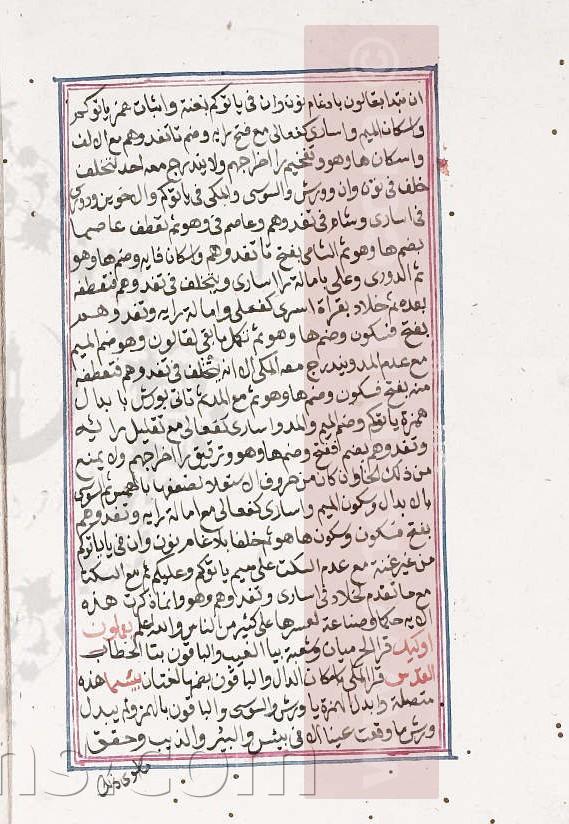 ان تبدا بقالون بادغام نون وان فى ياتوكم بغنة واثبات همز ياتوكم
واسكان الميم واسارى كفعالى مع فتح رايه وضم تا تفدوهم مع الالف
واسكان ها وهو وتفخيم را اخراجهم ولا يندرج معه احد لتخلف
خلف فى نون وان وورش والسوسى والمكى فى ياتوكم والاخوين ودورى
فى اسارى وشام فى تفدوهم وعاصم فى وهو ثم تعطف عاصما
بضم ها وهو ثم الشامى بفتح تا تفدوهم واسكان فايه وضم ها وهو
ثم الدورى وعلى بامالة را اسارى ويتخلف فى تفدوهم فتعطفه
بعده ثم خلاد بقراة اسرى كفعلى وامالة رايه وتفدوهم
بفتح فسكون وضم ها وهو ثم تكمل ما بقى لقالون وهو ضم الميم
مع عدم المد ويندرج معه المكى الا انه يتخلف فى تفدوهم فتعطفه
منه بفتح فسكون وضم ها وهو ثم مع المد ثم تاتى بورش بابدال
همزة ياتوكم وضم الميم والمد واسارى كفعالى مع تقليل رائيه
وتفدوهم بضم ففتح وضم ها وهو وترقيق را اخراجهم ولا يمنع
من ذلك الخا وان كان من حروف الاستعلا لضعفها بالهمس ثم السوسى
بالابدال وسكون الميم واسارى كفعالى مع امالة رايه وتفدوهم
بفتح فسكون وسكون ها وهو ثم خلفا بادغام نون وان فى يا ياتوكم
من غير غنة مع عدم السكت على ميم ياتوكم وعليكم ثم مع السكت
مع ما تقدم لخلاد فى اسارى وتفدوهم وهو وانما ذكرت هذه
الايه حكما وصناعة لعسرها على كثير من الناس والله اعلم يعملون
اوليك قرا الحرميان وشعبة بيا الغيب والباقون بتا الخطاب
القدس قرا المكى باسكان الدال والباقون بضمها لختان بئسما هذه
متصلة وابدل الهمزة يا ورش والسوسى والباقون بالهمز ولم يبدل
ورش ما وقعت عينا الا فى بئس والبير والذيب وحقق